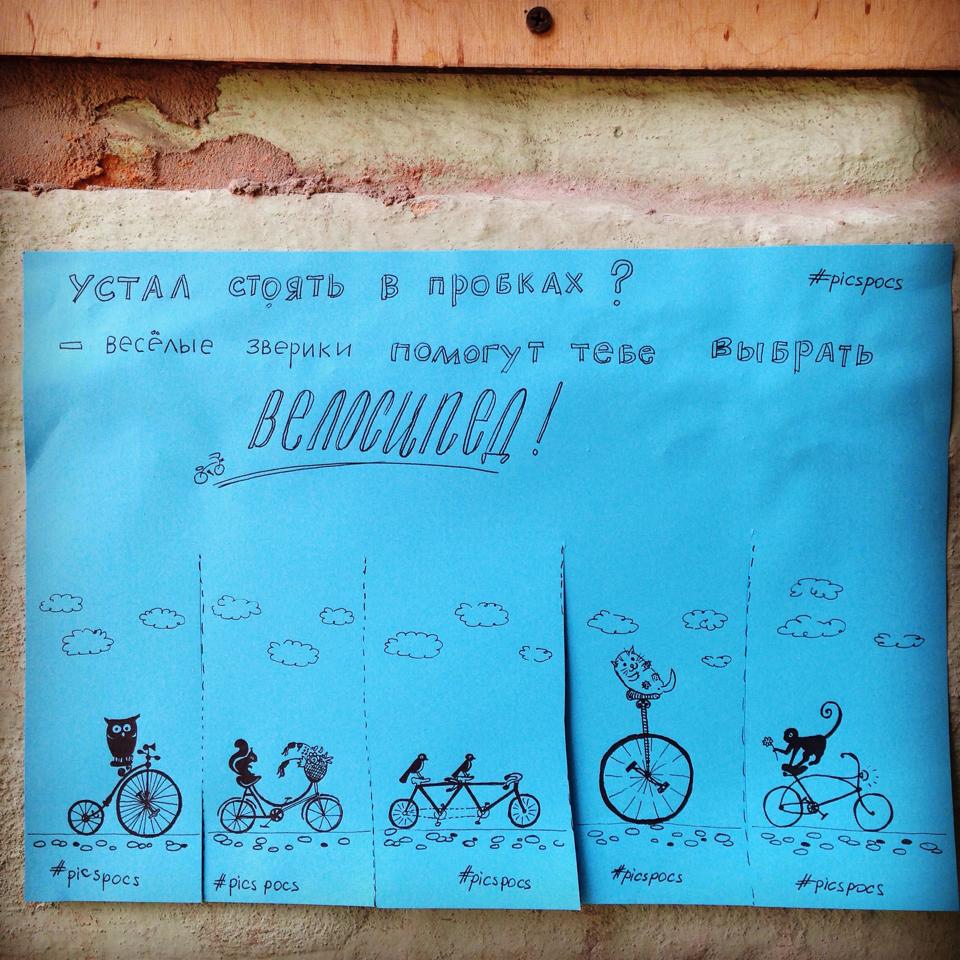 УСТАЛ СТОЯТЬ В ПРОБКАХ ? #picspocs
- ВЕСЁЛЫЕ ЗВЕРИКИ ПОМОГУТ ТЕБЕ ВЫБРАТЬ
ВЕЛОСИПЕД!
#picspocs #pics pocs #picspocs #picspocs #picspocs